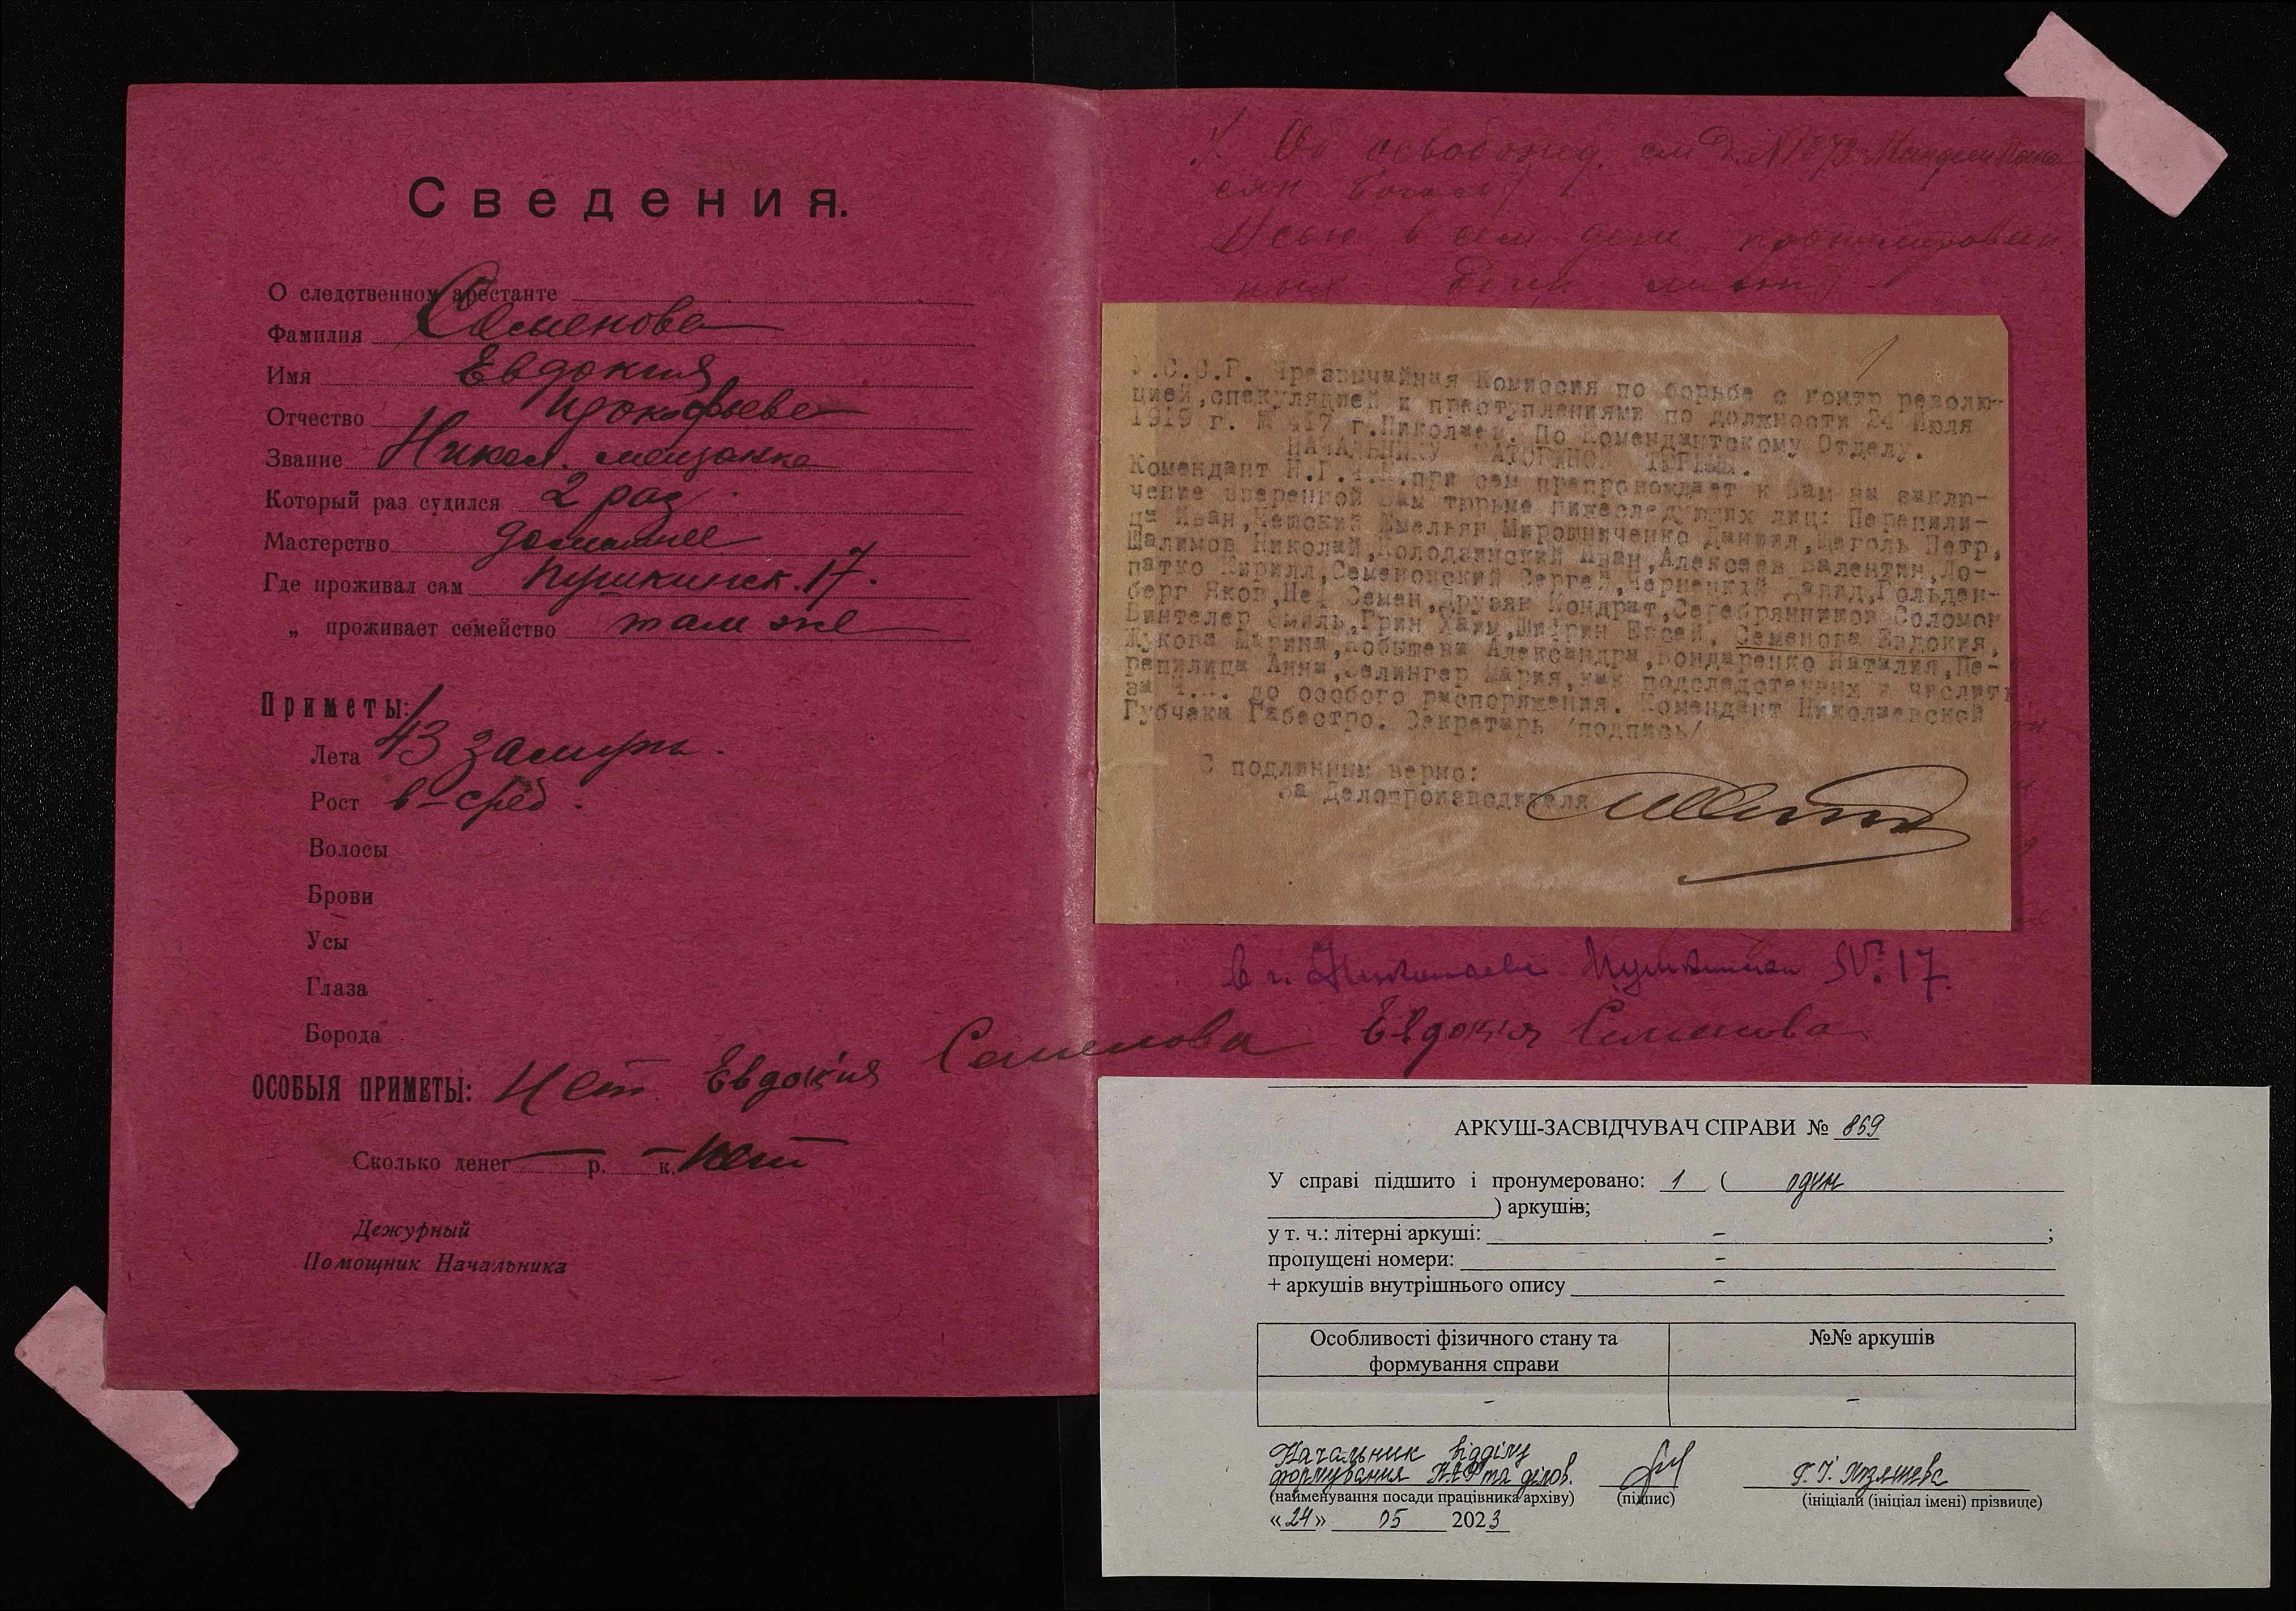 Сведения.
О следственном арестанте
Фамилия Семенова
Имя Евдокия
Отчество Прокофьева
Звание Никол. мещанка
Который раз судился 2 раз
Мастерство домашнее
Где проживал сам Пушкинск. 17.
„ проживает семейство там же
Приметы:
Лета 43 замужн.
Рост в-сред.
Волосы
Брови
Усы
Глаза
Борода
ОСОБЫЯ ПРИМЕТЫ: Нет Евдокія Семенова
Сколько денег р. к. Нет
Дежурный
Помощник Начальника
Об освобожд. см д. №
Всего в сем деле пронумерован
ных один лист
1
У.С.С.Р. Чрезвычайная Комиссия по борьбе с контр револю-
цией,спекуляцией и преступлениями по должности 24 Июля
1919 г. № 417 г.Николаев. По Комендантскому Отделу.
НАЧАЛЬНИКУ КАТОРЖНОЙ ТЮРЬМЫ.
Комендант Н.Г.Ч.К.при сем препровождает к Вам на заклю-
чение вверенной Вам тюрьме нижеследующих лиц: Перепили-
ца Иван, Емельян Мирошниченко Даниил,Щеголь Петр,
Шалимов Николай,Колодзинский Иван,Алексеев Валентин,Ло-
патко Кирилл,Семеновский Сергей,Чернецкий Давид,Гольден-
берг Яков, Семен,Друзяк Кондрат,Серебрянников Соломон
Винтелер Эмиль,Грин Хаим,Шифрин Евсей, Семенова Евдокия,
Жукова Марина,Кобышева Александра,Бондаренко Наталия,Пе-
репилица Анна,Зелингер Мария,как подследственных и числить
за Ч.К. до особого распоряжения. Комендант Николаевской
Губчека Габестро. Секретарь /подпись/
С подлинным верно:
За Делопроизводителя
в г. Николаеве Пушкинская № 17.
Евдокія Семенова
АРКУШ-ЗАСВІДЧУВАЧ СПРАВИ № 869
У справі підшито і пронумеровано: 1 ( один
) аркушів;
у т. ч.: літерні аркуші: – ;
пропущені номери: –
+ аркушів внутрішнього опису –
Особливості фізичного стану та №№ аркушів
формування справи
– –
Начальник відділу
формування НАФ та ділов.
(найменування посади працівника архіву) (підпис) (ініціали (ініціал імені) прізвище)
«24» 05 2023